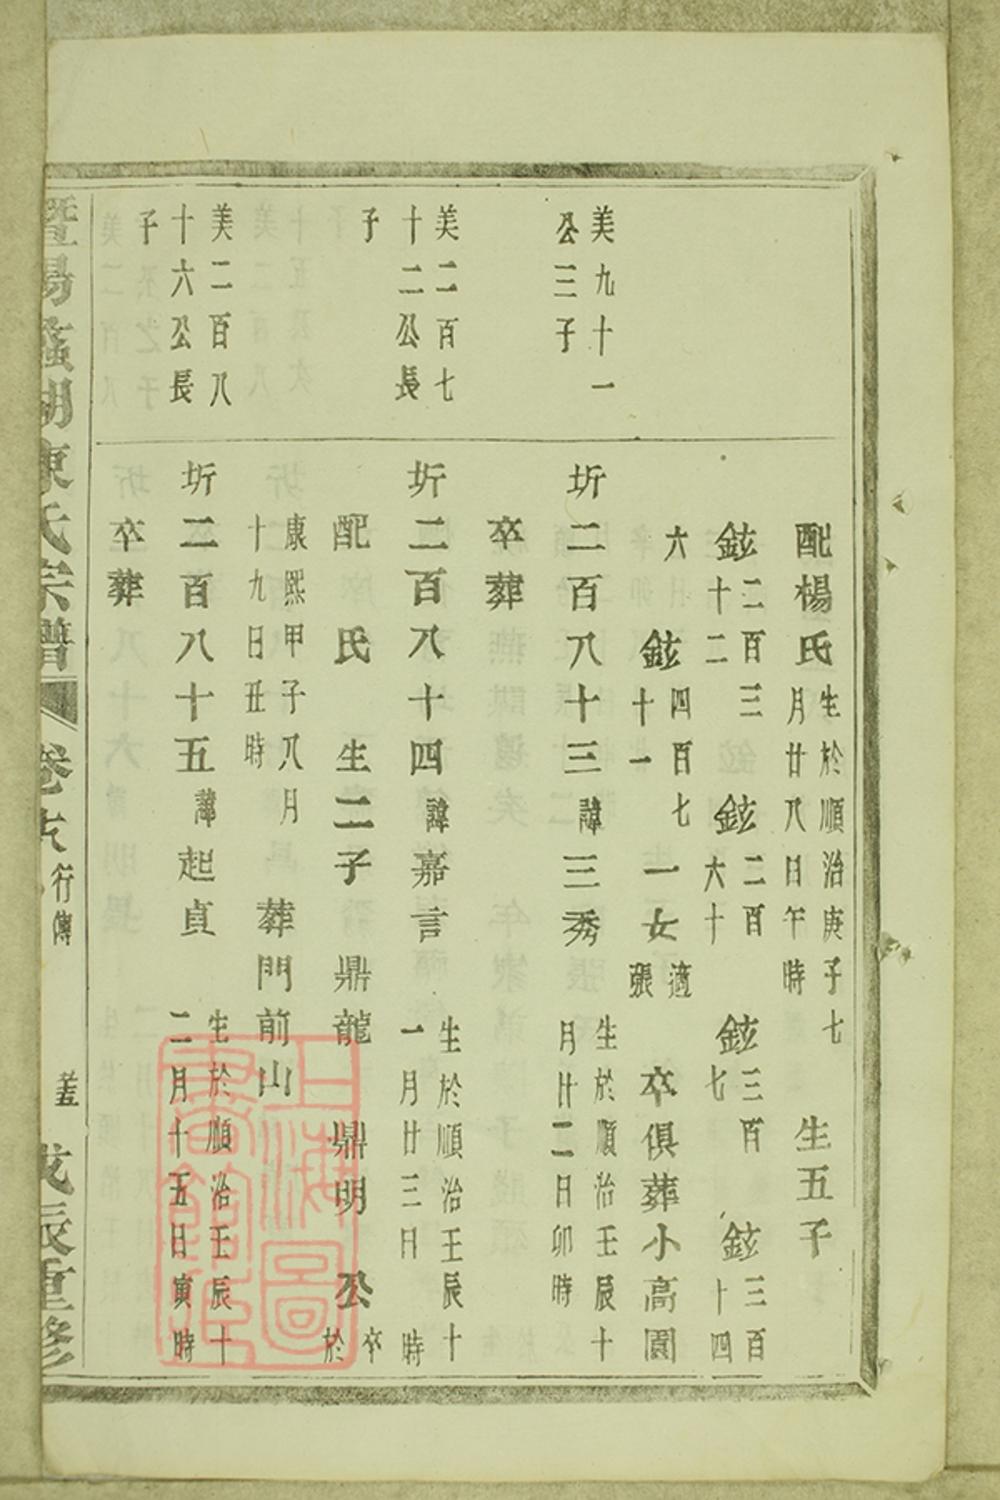 配楊氏
生於順治庚子七
月廿八日午時
生五子
鉉二百三
十二
鉉二百
六十
鉉三百
七
鉉三百
十四
六
鉉四百七
十一
一女
適
張
卒俱葬小高園
美九十一
公三子
圻二百八十三諱三秀
生於順治壬辰十
月廿二日卯時
卒葬
美二百七
十二公長
子
圻二百八十四諱嘉言
生於順治壬辰十
一月廿三日時
配氏生二子鼎龍鼎明公
卒
於
康熙甲子八月
十九日丑時
葬門前山
美二百八
十六公長
子
圻二百八十五諱起貞
生於順治壬辰十
二月十五日寅時
卒葬
暨陽 湖陳氏宗譜
行傳
戊辰重修
上海圖
書館藏